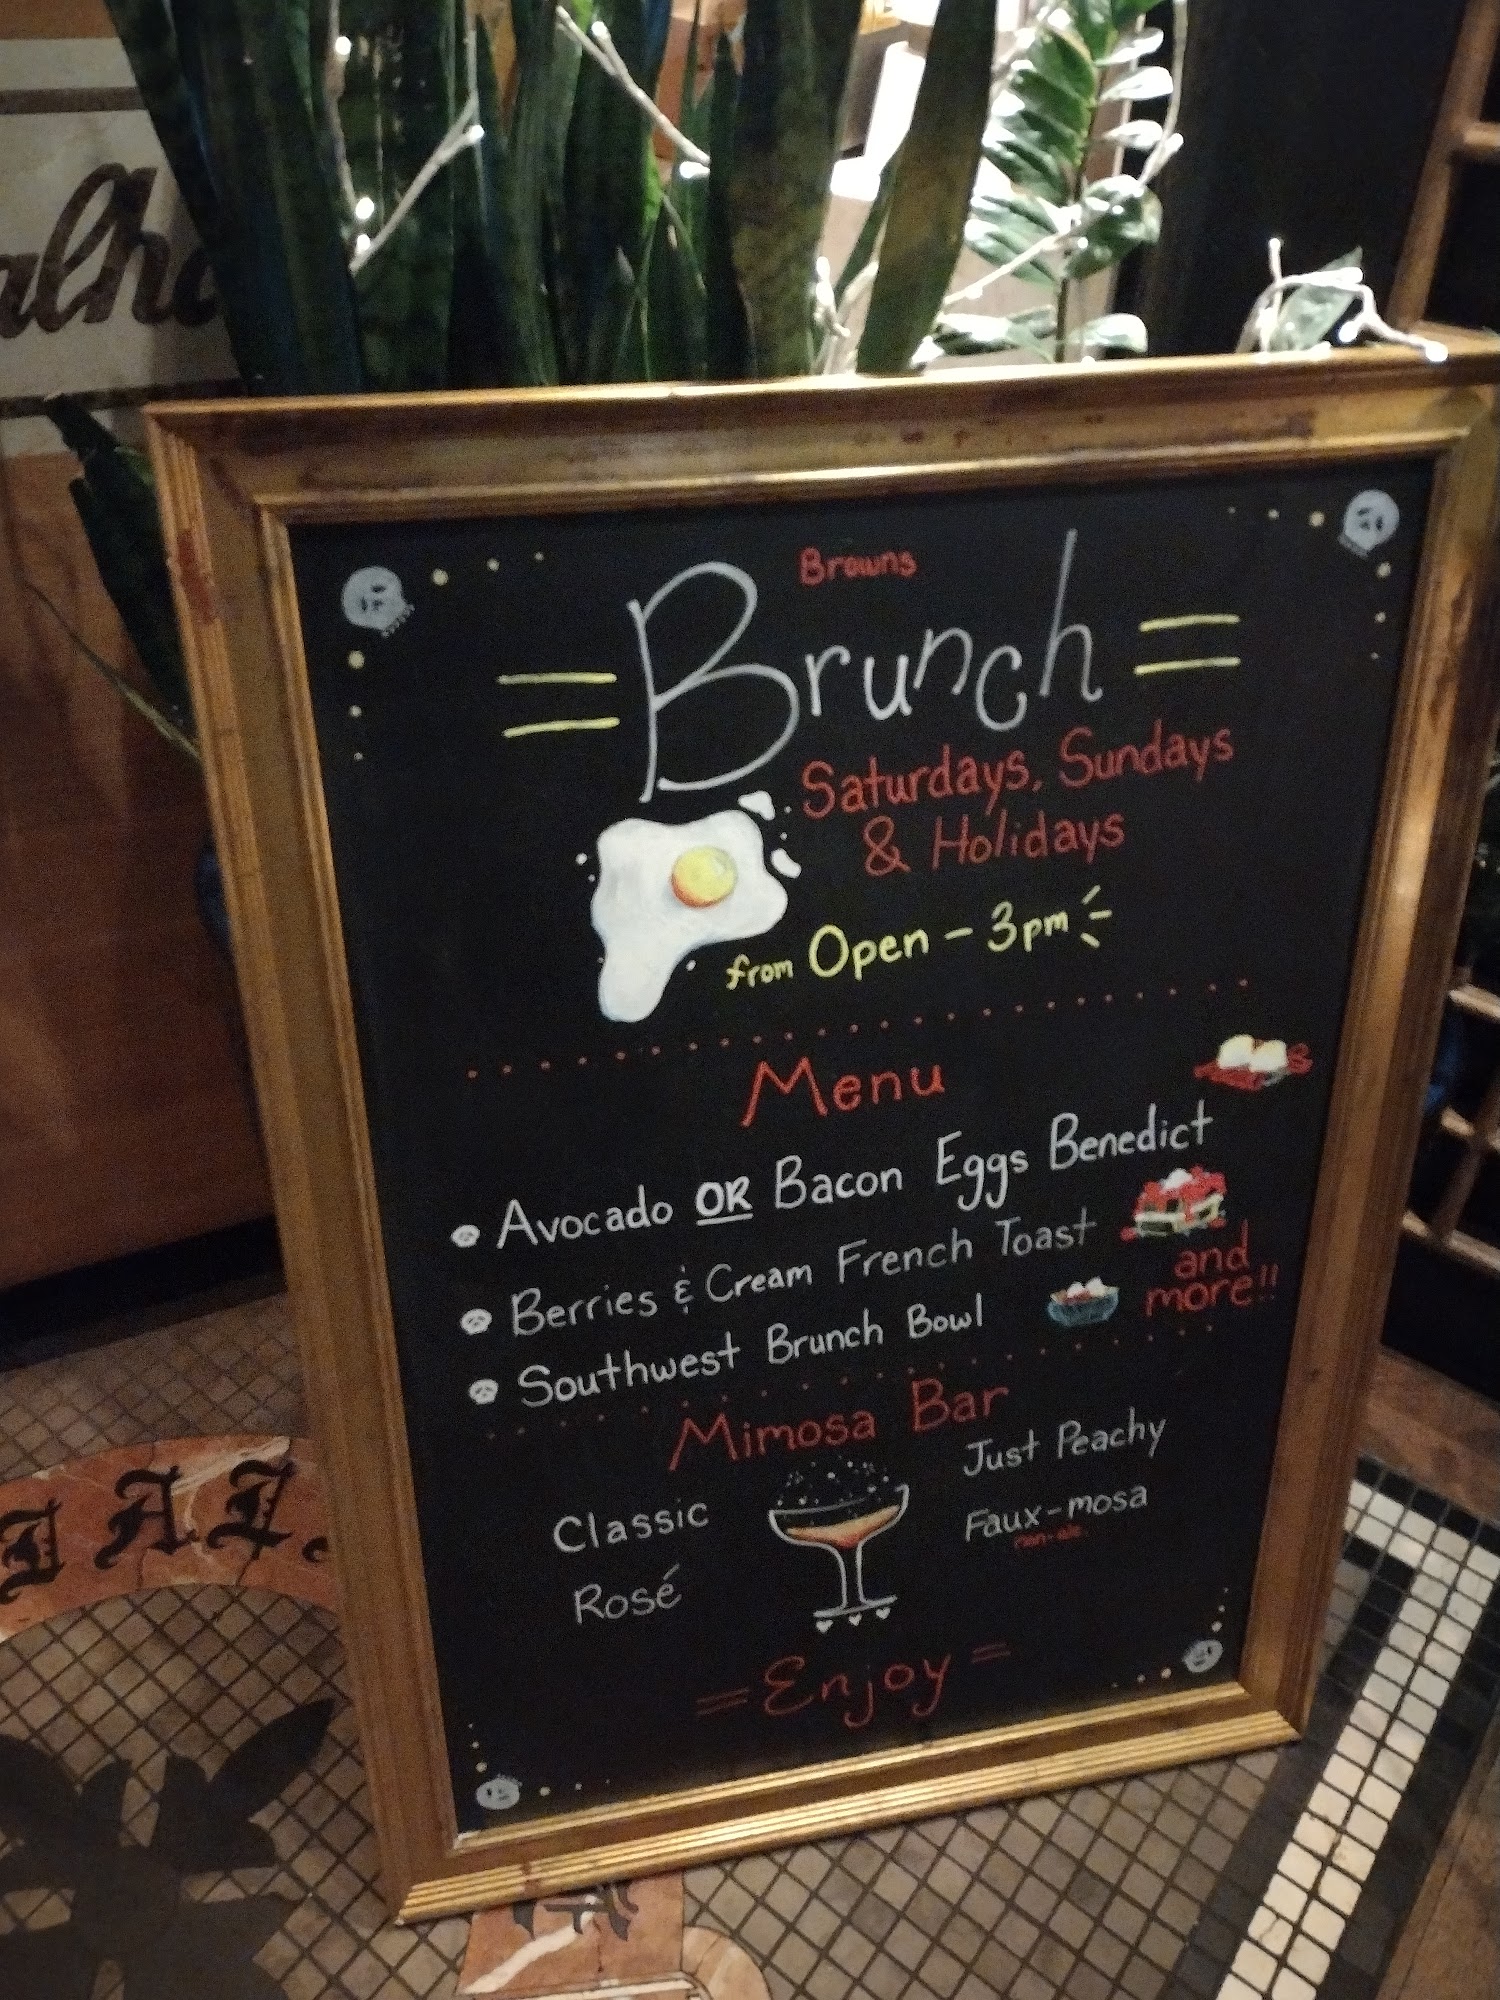 Browns
Brunch
Saturdays, Sundays
& Holidays
from Open - 3pm
Menu
Avocado OR Bacon Eggs Benedict
Berries & Cream French Toast
Southwest Brunch Bowl
and
more!!
Mimosa Bar
Classic
Rosé
Just Peachy
Faux-mosa
non-alc.
Enjoy